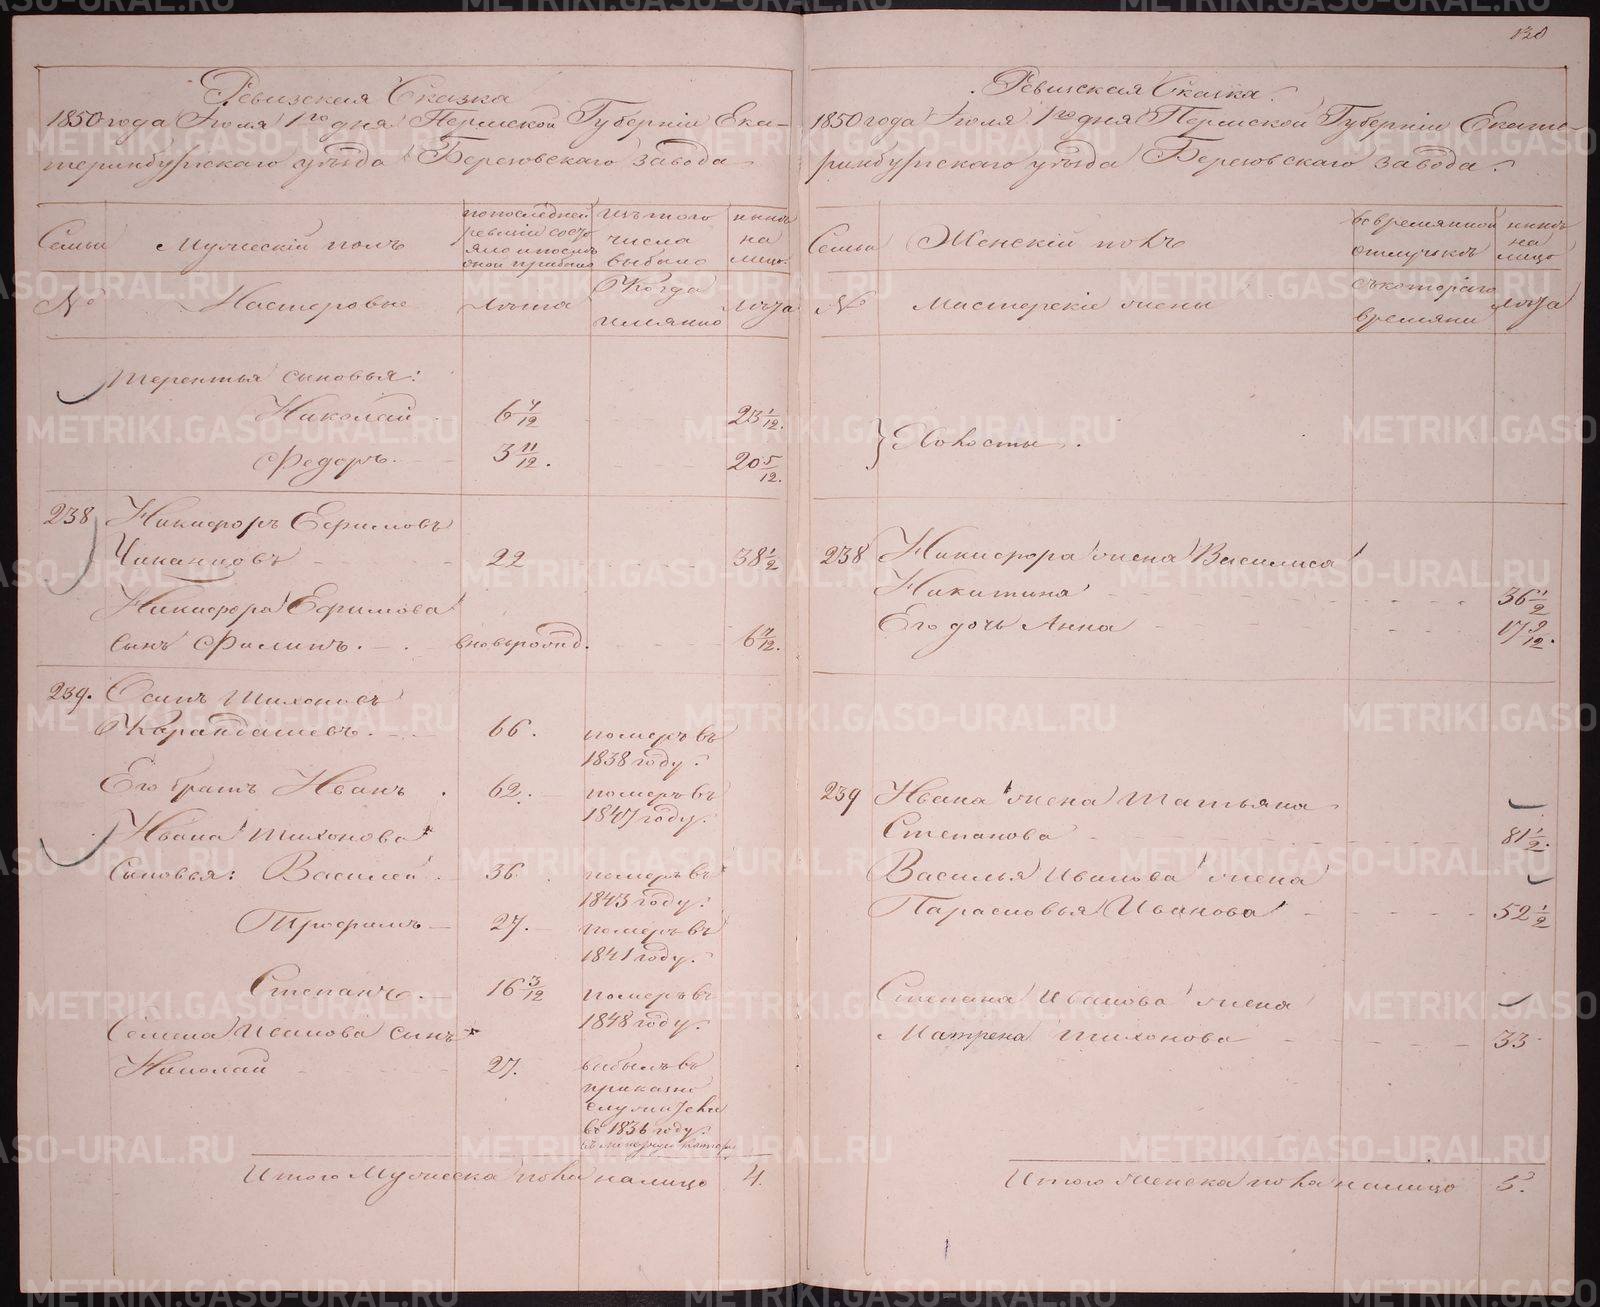 130
Ревизская Сказка
1850 года Іюля 1го дня Пермской Губерніи Ека-
теринбургскаго уѣзда Березовскаго завода
Семьи
Мужескій полъ
по последней
ревизіи состо
яло и послѣ
оной прибыло
изъ того
числа
выбыло
нынѣ
на
лицо.
№
Мастеровые
Лѣта
Когда
имянно
Лѣта
Терентья сыновья:
Николай 6 7/12 23 1/12.
Федоръ. 3 11/12. 20 5/12.
238 Никифоръ Ефимовъ
Чиканцовъ 22 38 1/2
Никифора Ефимова
сынъ Филипъ. вновьрожд. 6 7/12.
239. Осипъ Тихоновъ
Карандашевъ. 66. померъ въ
1838 году.
Его братъ Иванъ 62. померъ въ
1847 году.
Ивана Тихонова
Сыновья: Василей 36. померъ въ
1843 году.
Трофимъ 27. померъ въ
1841 году.
Степанъ 16 3/12 померъ въ
1848 году.
Семена Иванова сынъ
Николай 27. выбылъ въ
приказно
служители
въ 1836 году.
Итого Мужеска пола налицо 4.
Ревизская Сказка.
1850 года Іюля 1го дня Пермской Губерніи Екате-
ринбургскаго уѣзда Березовскаго завода.
Семьи
Женскій полъ
во времянной
отлучкѣ
нынѣ
на
лицо
№
Мастерскіе жены
съ котораго
времяни
Лѣта
Холосты.
238 Никифора жена Василиса
Никитина 36 1/2
Его дочь Анна 17 9/12.
239 Ивана жена Татьяна
Степанова 81 1/2.
Василья Иванова жена
Парасковья Иванова 52 1/2
Степана Иванова жена
Матрена Тихонова 33
Итого женска пола налицо 5.
METRIKI.GASO-URAL.RU